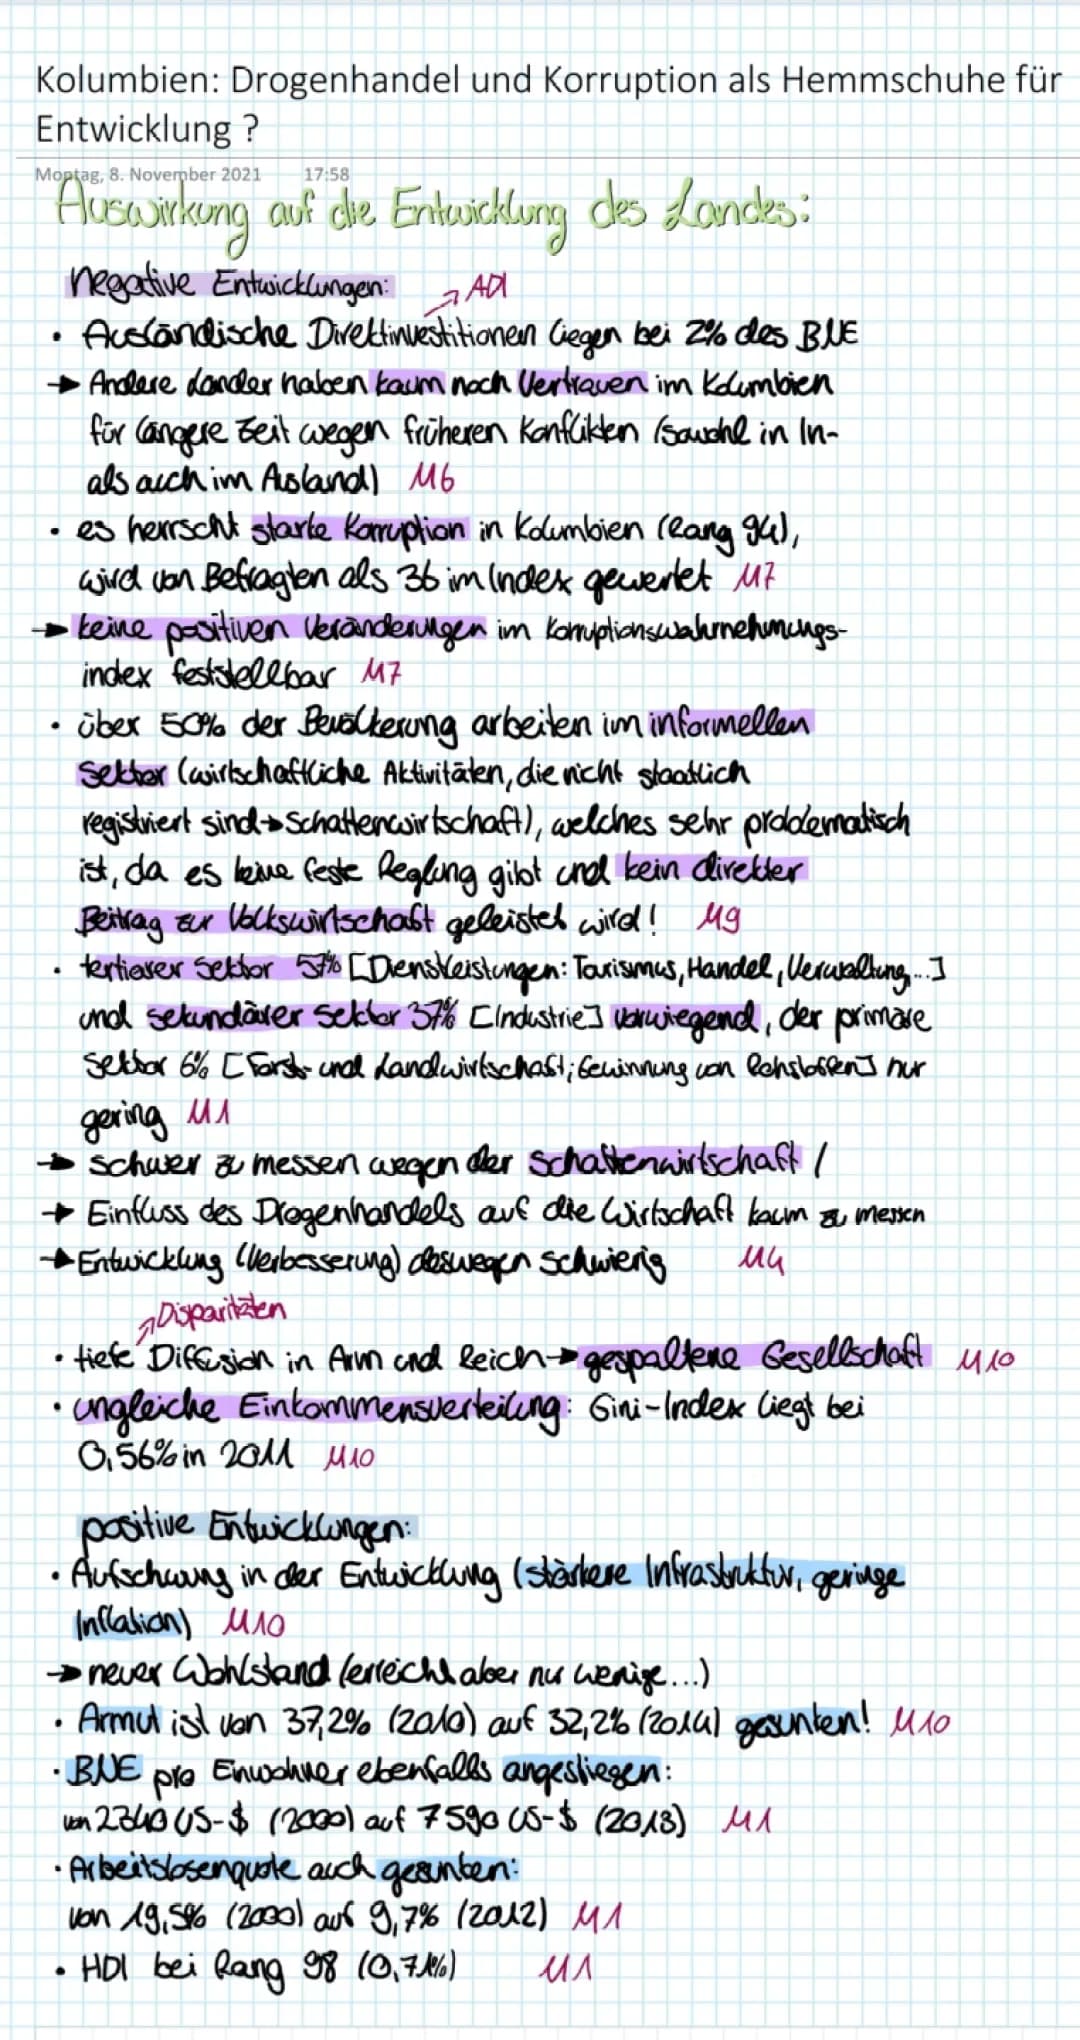 Kolumbien: Drogenhandel und Korruption als Hemmschuhe für
Entwicklung ?
Montag, 8. November 2021 17:58
Auswirkung auf die Entwicklung des Landes:
negative Entwicklungen:
↗ ADI
• Ausländische Direktinvestitionen liegen bei 2% des BNE
→ Andere Länder haben kaum noch Vertrauen im Kolumbien
für längere Zeit wegen früheren Konflikten (sowohl in In-
als auch im Ausland) M6
• es herrscht starke Korruption in Kolumbien (Rang 94),
wird von Befragten als 36 im Index gewertet M7
→ keine positiven Veränderungen im Korruptionswahrnehmungs-
index feststellbar M7
• über 50% der Bevölkerung arbeiten im informellen
Sektor (wirtschaftliche Aktivitäten, die nicht staatlich
registriert sind → Schattenwirtschaft), welches sehr problematisch
ist, da es keine feste Reglung gibt und kein direkter
Beitrag zur Volkswirtschaft geleistet wird! M9
• tertiärer Sektor 57% [Dienstleistungen: Tourismus, Handel, Verwaltung...]
und sekundärer Sektor 37% [Industrie] vorwiegend, der primäre
Sektor 6% [Forst- und Landwirtschaft; Gewinnung von Rohstoffen] nur
gering M1
→ schwer zu messen wegen der Schattenwirtschaft /
→ Einfluss des Drogenhandels auf die Wirtschaft kaum zu messen
→ Entwicklung (Verbesserung) deswegen schwierig M4
↗ Disparitäten
• tiefe Diffusion in Arm und Reich → gespaltene Gesellschaft M10
• ungleiche Einkommensverteilung: Gini-Index liegt bei
0,56% in 2011 M10
positive Entwicklungen:
• Aufschwung in der Entwicklung (stärkere Infrastruktur, geringe
Inflation) M10
→ neuer Wohlstand (erreicht aber nur wenige...)
• Armut ist von 37,2% (2010) auf 32,2% (2014) gesunken! M10
• BNE pro Einwohner ebenfalls angestiegen:
von 2340 US-$ (2000) auf 7590 US-$ (2013) M1
• Arbeitslosenquote auch gesunken:
von 19,5% (2000) auf 9,7% (2012) M1
• HDI bei Rang 98 (0,71%) M1